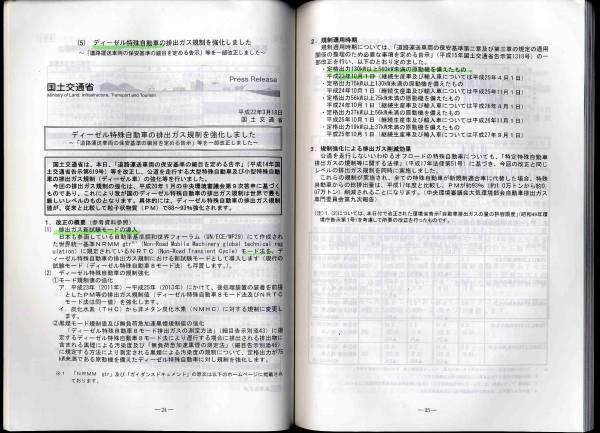 (5) ディーゼル特殊自動車の排出ガス規制を強化しました
~「道路運送車両の保安基準の細目を定める告示」等を一部改正しました~
Press Release
国土交通省
Ministry of Land, Infrastructure, Transport and Tourism
平成22年3月18日
国土交通省
ディーゼル特殊自動車の排出ガス規制を強化しました
~「道路運送車両の保安基準の細目を定める告示」等を一部改正しました~
国土交通省は、本日、「道路運送車両の保安基準の細目を定める告示」(平成14年国
土交通省告示第619号)等を改正し、公道を走行する大型特殊自動車及び小型特殊自動車
の排出ガス規制(ディーゼル車)の強化等を行いました。
今回の排出ガス規制の強化は、平成20年1月の中央環境審議会第9次答申に基づく
ものであり、これにより我が国のディーゼル特殊自動車の排出ガス規制は世界で最も
厳しいレベルのものとなります。具体的には、ディーゼル特殊自動車の排出ガス規制
値が、従来と比較して粒子状物質(PM)で88~93%強化されます。
1.改正の概要(参考資料参照)
(1) 排出ガス新試験モードの導入
日本も参画している自動車基準調和世界フォーラム(UN/ECE/WP29)にて作成され
た世界統一基準NRMM gtr※1(Non-Road Mobile Machinery global technical reg
ulation)に規定されているNRTC(Non-Road Transient Cycle)モード法を、ディ
ーゼル特殊自動車の排出ガス規制における新試験モードとして導入します(現行の
試験モード(ディーゼル特殊自動車8モード法)も存置します。)。
(2) ディーゼル特殊自動車の規制強化
①モード規制値の強化
ア.平成23年(2011年)~平成25年(2013年)にかけて、後処理装置の装着を前提
としたPM等の排出ガス規制値(ディーゼル特殊自動車8モード法及びNRTC
モード法は同一値)を強化します。
イ.炭化水素(THC)から非メタン炭化水素(NMHC)に対する規制に変更し
ます。
②黒煙モード規制値及び無負荷急加速黒煙規制値の強化
「ディーゼル特殊自動車8モード排出ガスの測定方法」(細目告示別添43)に規
定するディーゼル特殊自動車8モード法により運行する場合に排出される排出物に
含まれる黒煙による汚染度及び「無負荷急加速黒煙の測定方法」(細目告示別添46)
に規定する方法により測定される黒煙による汚染度の規制について、定格出力が75
kW未満である原動機を備えたディーゼル特殊自動車に対し規制を強化します。
※1 「NRMM gtr」及び「ガイダンスドキュメント」の原文は以下のホームページに掲載され
ております。
―24―
2.規制適用時期
規制適用時期については、「道路運送車両の保安基準第二章及び第三章の規定の適用
関係の整理のため必要な事項を定める告示」(平成15年国土交通省告示第1318号)の一
部改正を行い、以下のとおり定めました。
・定格出力130kW以上560kW未満の原動機を備えたもの
平成23年10月1日(継続生産車及び輸入車については平成25年4月1日)
・定格出力75kW以上130kW未満の原動機を備えたもの
平成24年10月1日(継続生産車及び輸入車については平成25年11月1日)
・定格出力56kW以上75kW未満の原動機を備えたもの
平成24年10月1日(継続生産車及び輸入車については平成26年4月1日)
・定格出力37kW以上56kW未満の原動機を備えたもの
平成25年10月1日(継続生産車及び輸入車については平成26年11月1日)
・定格出力19kW以上37kW未満の原動機を備えたもの
平成25年10月1日(継続生産車及び輸入車については平成27年9月1日)
3.規制強化による排出ガス削減効果
公道を走行しないいわゆるオフロードの特殊自動車についても、「特定特殊自動車
排出ガスの規制等に関する法律」(平成17年法律第51号)に基づき、今回の改正と同じ
レベルの排出ガス規制を同時に実施しました。
これらの規制が実施され、全ての特殊自動車が新規制適合車に代替した場合、特殊
自動車からの総排出量は、平成17年度と比較し、PMが約93%(
削減されることになります。(中央環境審議会大気環境部会自動車排出ガス
専門委員会第九次報告)
―25―